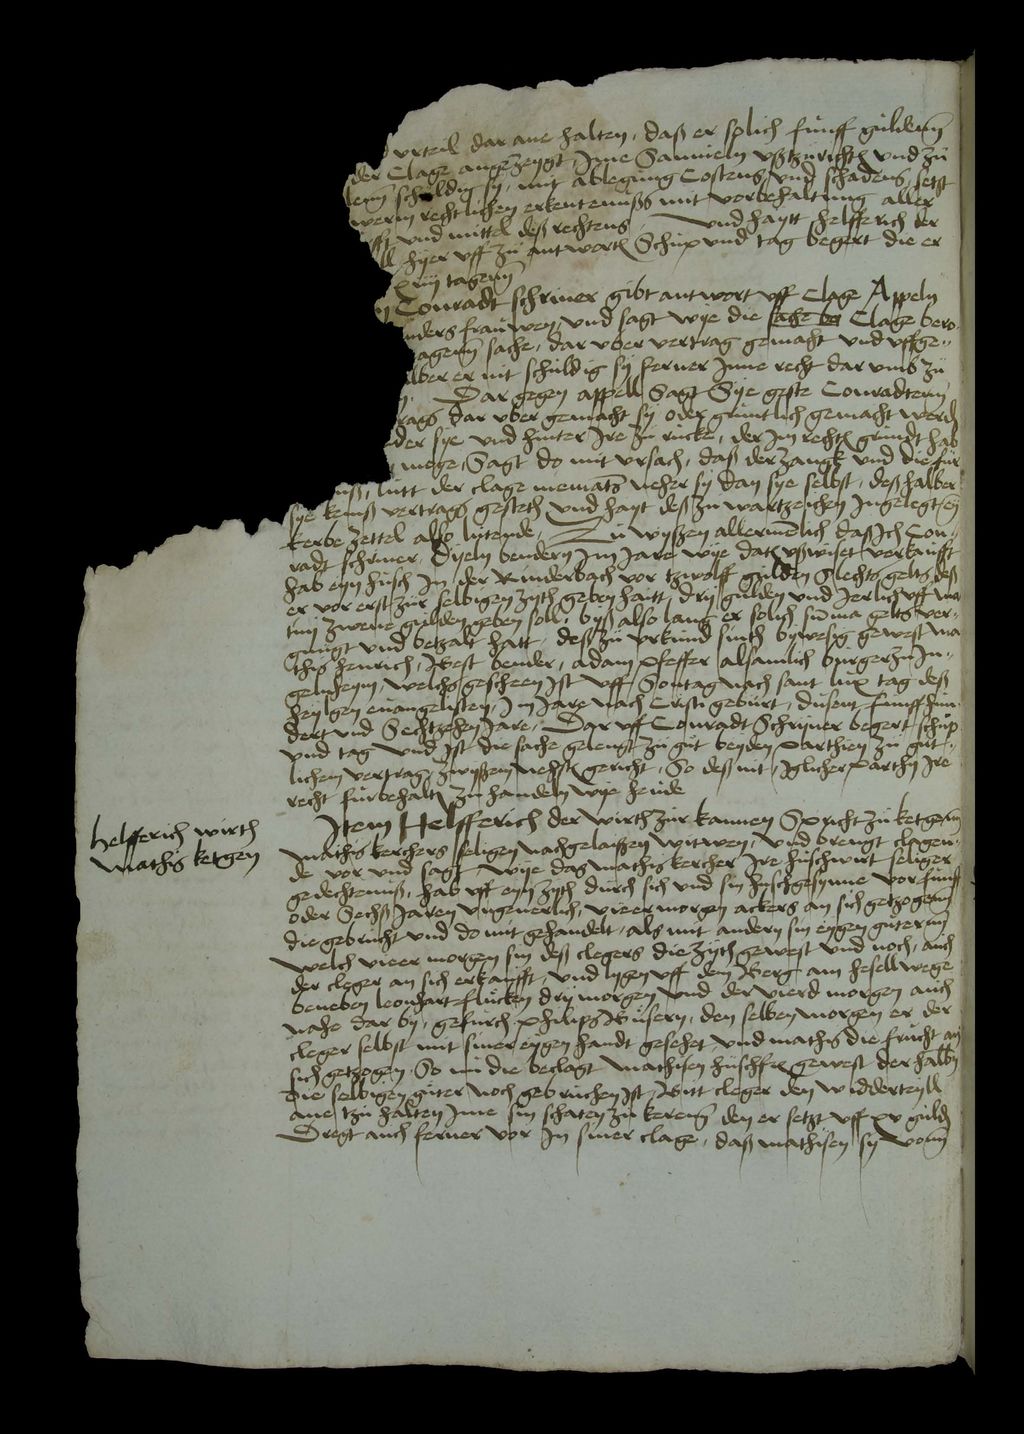 urteil dar ane halten, daß er solich funff guldenn
der Clage angezeygt, Jme Samueln ußzurichten und zu
lenn schuldig sy, mit ablegung Costens und schadens, setzt
werm rechtlichen erkentenuß mit vorbehaltung aller
und mittel deß rechtens. Und hayt helfferich der
hyer uff zu antworten Schup und tag begert die er
xiiij tagenn
Conradt schriner gibt antwort uff Clage Appeln
nders frauwen, und sagt wye die Clage bero
agenn sache, dar uber vertrag gemacht und uffge
lber er nit schuldig sy ferner Jnne recht dar umb zu
Dar gegen appell Sagt Sye geste Conradtenn
trags dar uber gemacht sy oder gruntlich gemacht werd
der sye und hinter Jre zu rucke, der Jm rechten grundt hab
moge, Sagt do mit ursach, daß der zangk und die fur
nuß, lutt der clage niemats neher sy dan sye selbst, deßhalber
sye keins vertrags gesteth und hayt deß zu wartzeichen Jngelegt eyn
kerbe zettel also lutende, Zu wyßen allermelich daß Jch Con
radt schriner, Dyeln bendern Jm Jare wye dato ußwiset verkaufft
hab eyn husch Jn der Rinderbach vor tzwolff gulden Slechts gelts deß
er vor erst zur selbigen zyth geben haitt dry gulden und Jerlich uff mar
tinj zwene gulden geben soll, byß also lang er solich suma gelts ver
gnugt und betzalt hatt, deß zu urkund sinth bywesig gewest ma
this henrich, Best bender, adam pfeffer alsamlich burger zu Jn
gelnheym, welchs gescheen Jst uff Sontag nach sant lux tag deß
heylgen euangelisten, Jm Jare nach Cristi geburt, dusent funffhun
dert und Sechtzehen Jare, Dar uff Conradt Schriner begert schup
und tag und Jst die sache gelengt zu gut beyden parthien zu gut
lichen vertrag zwyßen nehsten gericht, So deß nit, Jglicher parthij Jre
recht furbehalten zu handeln wye heude
helfferich wirth
mathis ketgen
Jtem Helfferich der wirth zur kannen Spricht zu ketgenn
mathis kerchers seligen nachgelaßen witwen, und brengt clagen
de vor und sagt wye das mathis kercher Jre huschwirt seliger
gedechtenuß, hab uff eyn zyth durch sich und sin huschgesynne vor funff
oder Sechß Jaren ungeuerlich, vieer morgen ackers an sich getzogenn
die gebrucht und do mit gehandelt, als mit andern sin eygen guternn
welch vieer morgen sin deß clegers die zyth gewest und noch, auch
der cleger an sich erkaufft, und lygen uff dem Berg am hesell wege
beneben leonhart flucken dry morgen und der vierd morgen auch
nahe dar by, gefurch philips Busern, den selben morgen er der
cleger selbst mit siner eygen handt gesehet, und mathis die frucht an
sich getzogen, So nu die beclagt mathisen huschfrau gewest der halben
die selbigen guter noch gebruchen Jst, Bitt cleger den widderteyll
ane tzu halten Jme sin schaten zu kerenn den er setzt uff xv guld
Dregt auch ferner vor Jn siner clage, daß mathisen sy vonn